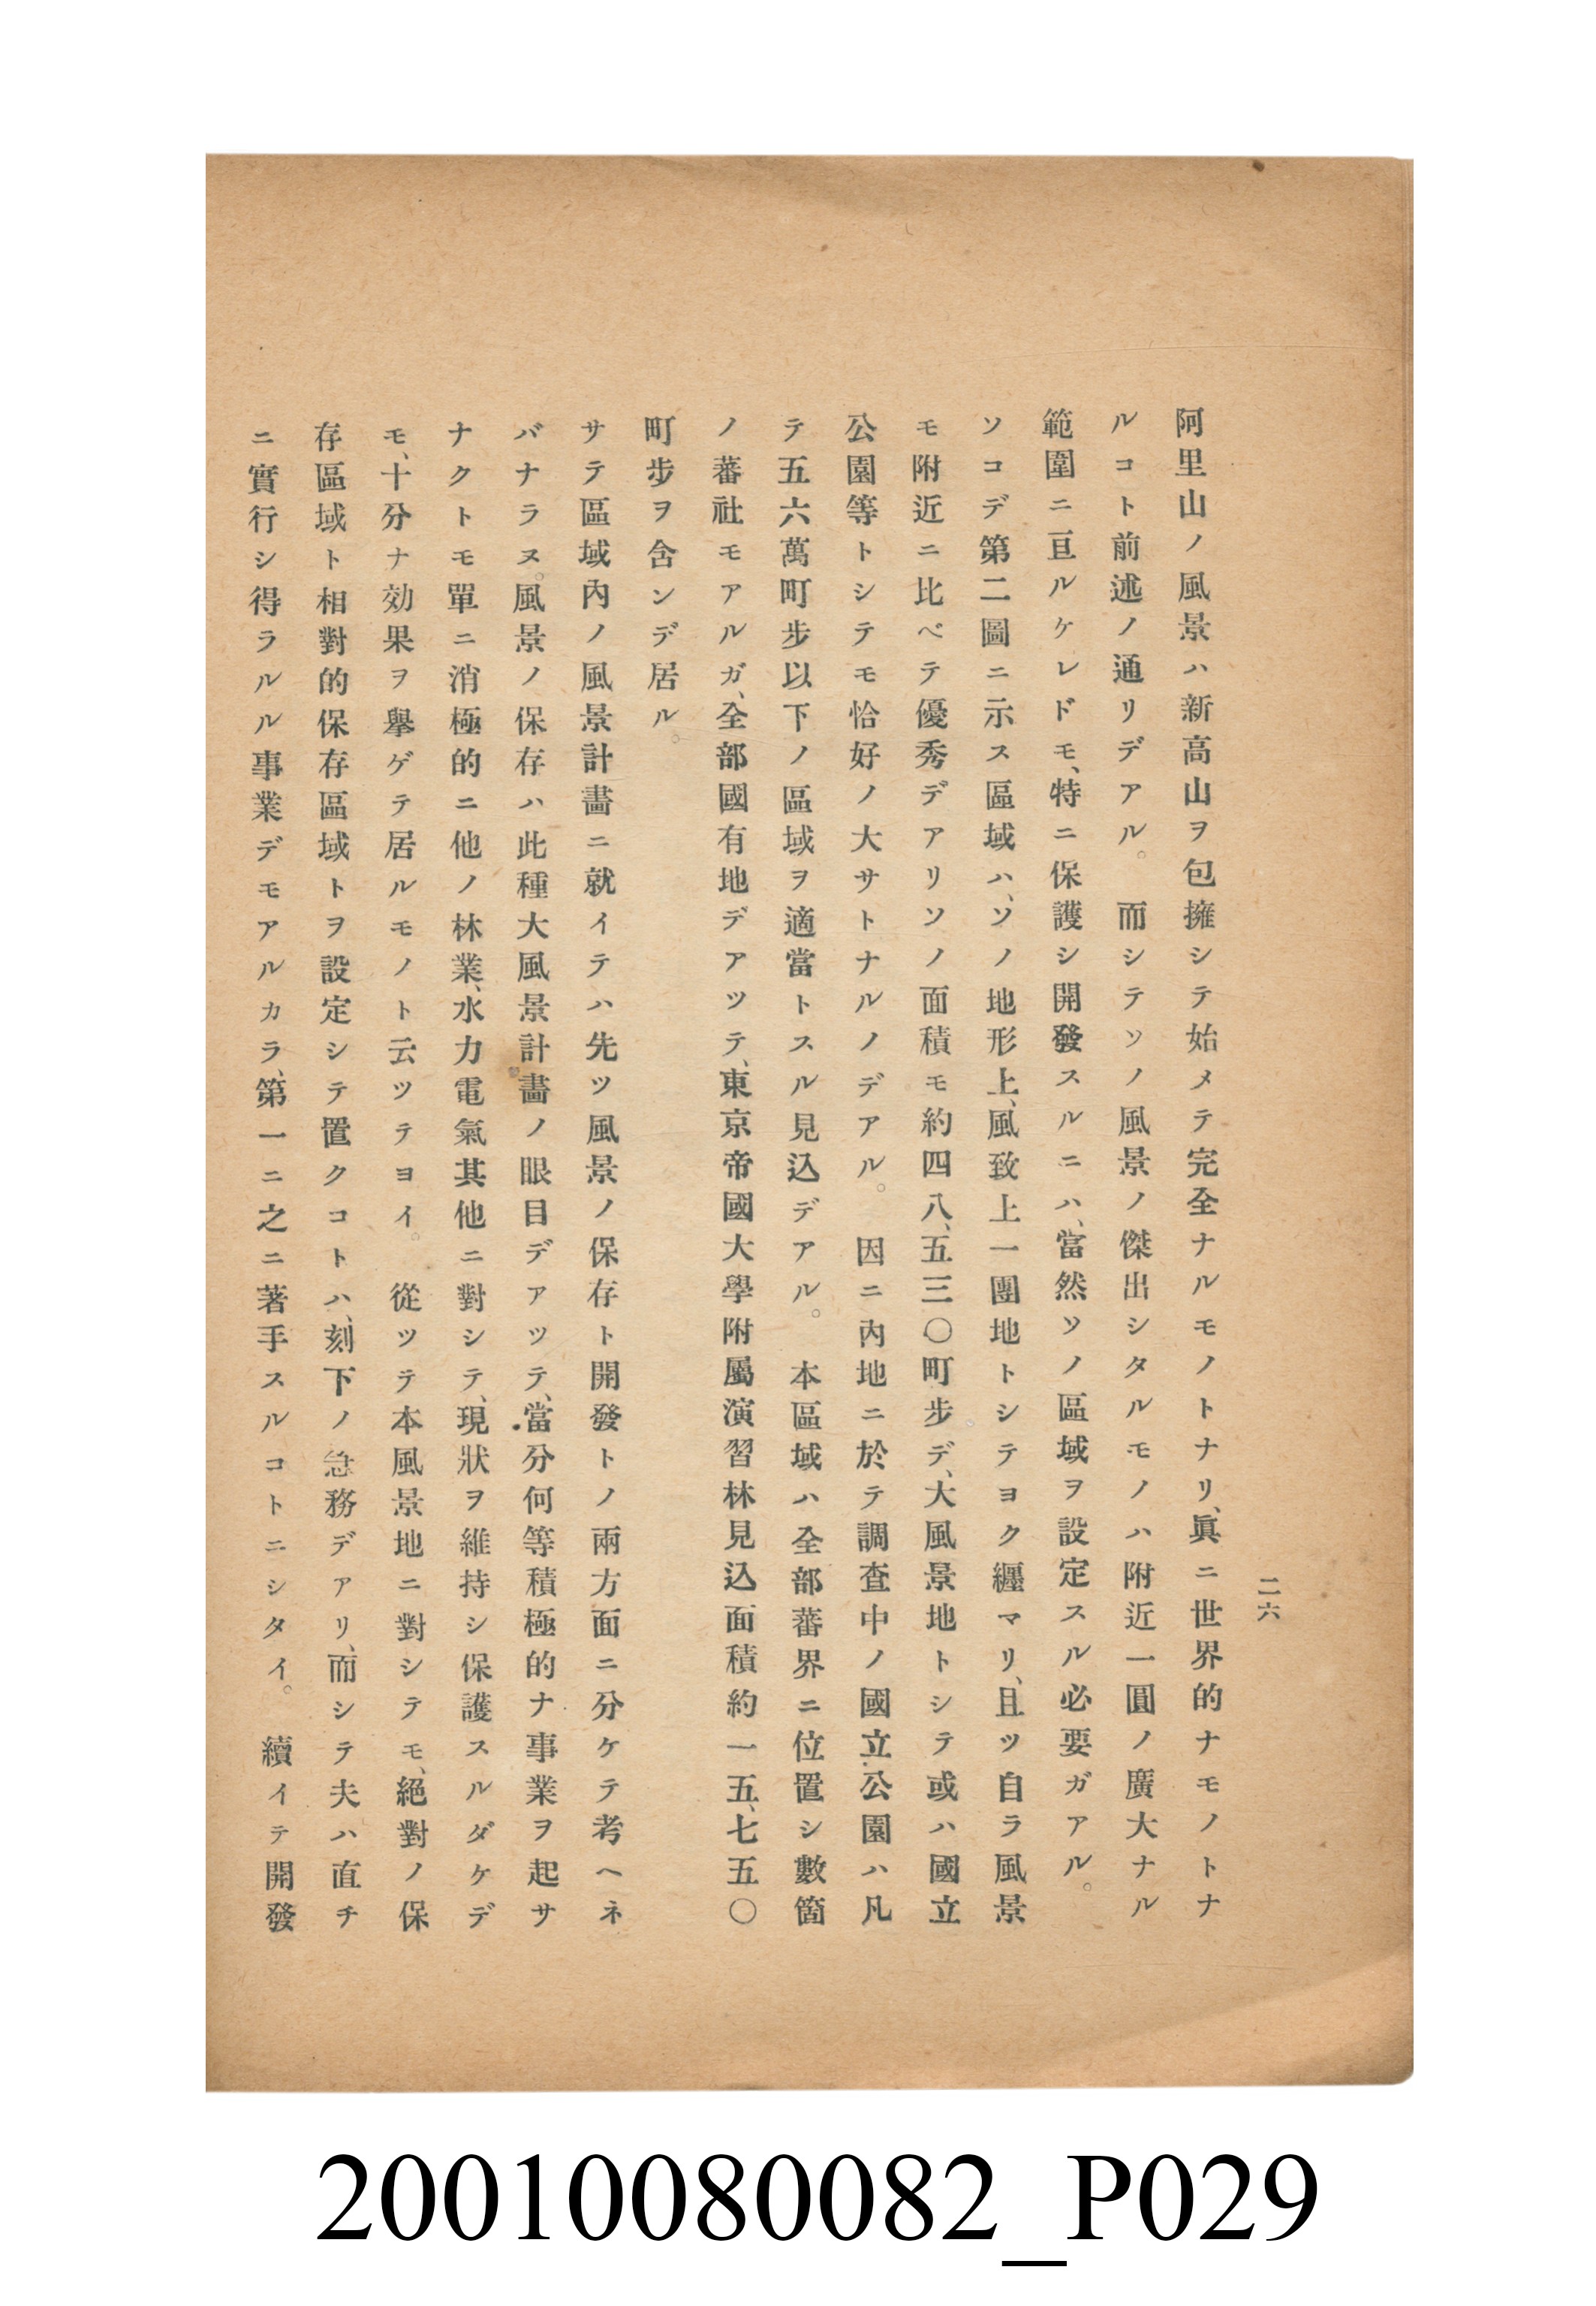 二六
阿里山ノ風景ハ新高山ヲ包擁シテ始メテ完全ナルモノトナリ、眞ニ世界的ナモノトナ
ルコト前述ノ通リデアル。而シテソノ風景ノ傑出シタルモノハ附近一圓ノ廣大ナル
範圍ニ亘ルケレドモ、特ニ保護シ開發スルニハ、當然ソノ區域ヲ設定スル必要ガアル。
ソコデ第二圖ニ示ス區域ハ、ソノ地形上、風致上一團地トシテヨク纒マリ、且ツ自ラ風景
モ附近ニ比ベテ優秀デアリソノ面積モ約四八、五三〇町步デ、大風景地トシテ或ハ國立
公園等トシテモ恰好ノ大サトナルノデアル。因ニ內地ニ於テ調査中ノ國立公園ハ凡
テ五六萬町步以下ノ區域ヲ適當トスル見込デアル。本區域ハ全部蕃界ニ位置シ數箇
ノ蕃社モアルガ、全部國有地デアツテ、東京帝國大學附屬演習林見込面積約一五、七五〇
町步ヲ含ンデ居ル。
サテ區域內ノ風景計畫ニ就イテハ先ツ風景ノ保存ト開發トノ兩方面ニ分ケテ考ヘネ
バナラヌ。風景ノ保存ハ此種大風景計畫ノ眼目デアツテ、當分何等積極的ナ事業ヲ起サ
ナクトモ單ニ消極的ニ他ノ林業、水力電氣其他ニ對シテ、現狀ヲ維持シ保護スルダケデ
モ、十分ナ効果ヲ擧ゲテ居ルモノト云ツテヨイ。從ツテ本風景地ニ對シテモ、絕對ノ保
存區域ト相對的保存區域トヲ設定シテ置クコトハ、刻下ノ急務デアリ、而シテ夫ハ直チ
ニ實行シ得ラルル事業デモアルカラ、第一ニ之ニ著手スルコトニシタイ。續イテ開發
20010080082_P029